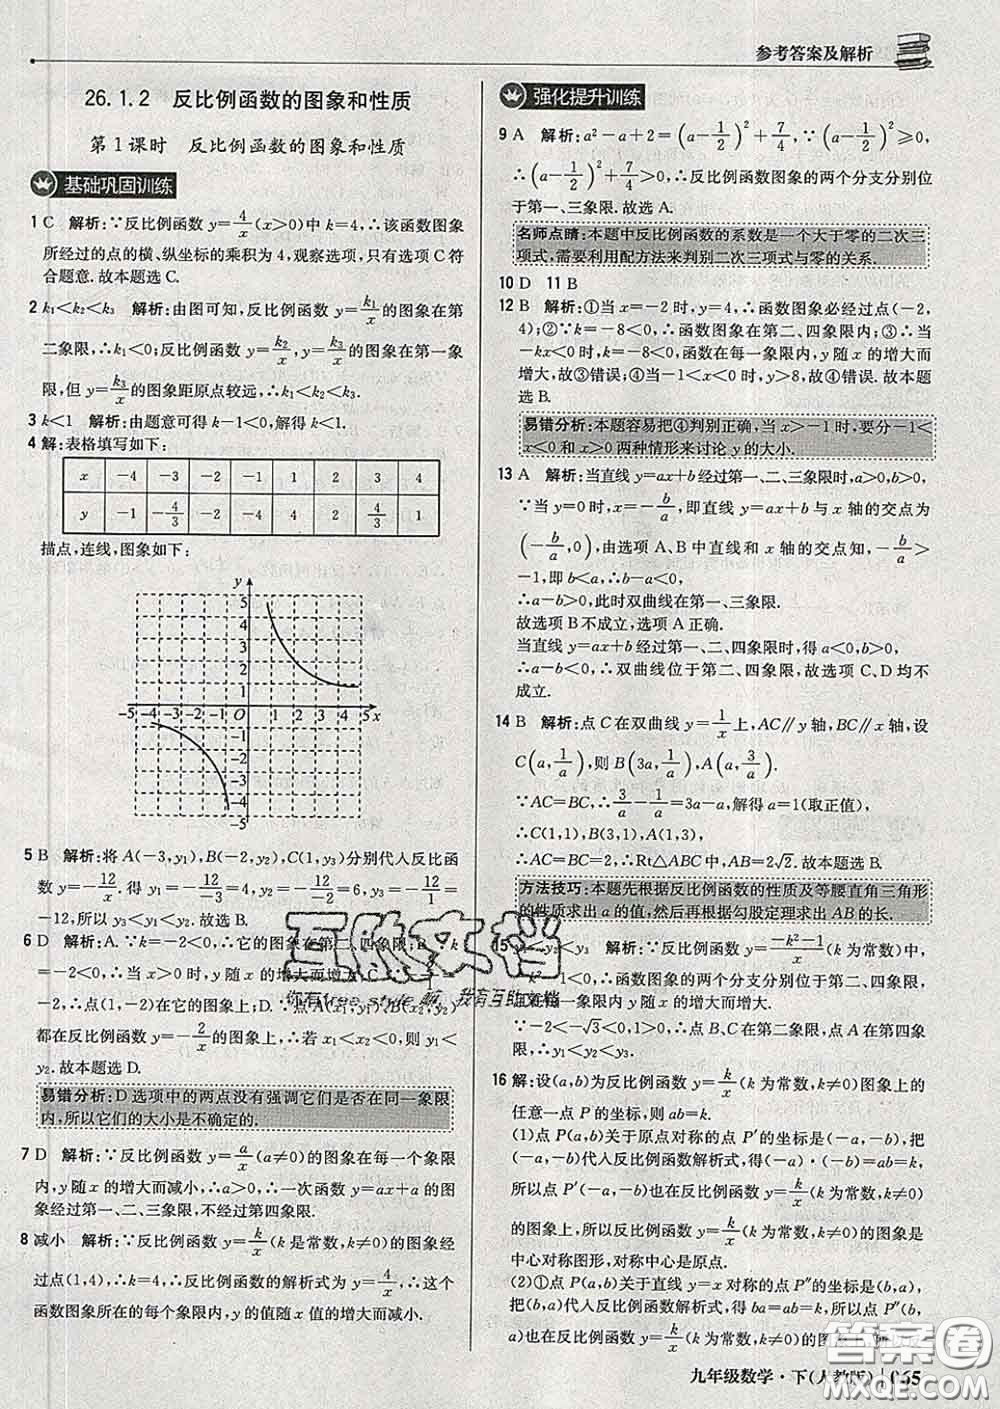 参考答案及解析
26.1.2 反比例函数的图象和性质
第1课时 反比例函数的图象和性质
基础巩固训练
1 C 解析:∵反比例函数 y=4/x(x>0)中 k=4,∴该函数图象
所经过的点的横、纵坐标的乘积为 4,观察选项,只有选项 C 符
合题意.故本题选 C.
2 k₁<k₂<k₃ 解析:由图可知,反比例函数 y=k₁/x 的图象在第
二象限,∴k₁<0;反比例函数 y=k₂/x,y=k₃/x 的图象在第一象
限,但 y=k₃/x 的图象距原点较远,∴k₁<k₂<k₃.
3 k<1 解析:由题意可得 k-1<0,解得 k<1.
4 解:表格填写如下:
x -4 -3 -2 -1 1 2 3 4
y -1 -4/3 -2 -4 4 2 4/3 1
描点,连线,图象如下:
y
5
4
3
2
1
-5 -4 -3 -2 -1 O 1 2 3 4 5 x
-1
-2
-3
-4
-5
5 B 解析:将 A(-3,y₁),B(-2,y₂),C(1,y₃)分别代入反比函
数 y=-12/x,得 y₁=-12/-3=4,y₂=-12/-2=6,y₃=-12/1=
-12,所以 y₃<y₁<y₂.故选 B.
6 D 解析:A.∵-2<0,∴它的图象在第二、四象限;B.∵k=
-2<0,当 x>0 时,y 随 x 的增大而增大;C.∵-2/1=
-2,∴点(1,-2)在它的图象上;D.∵点 A(x₁,y₁),B(x₂,y₂)
都在反比例函数 y=-2/x 的图象上,∴若 x₁<x₂<0,则 y₁<
y₂.故本题选 D.
易错分析:D 选项中的两点没有强调它们是否在同一象限
内,所以它们的大小是不确定的.
7 D 解析:∵反比例函数 y=a/x(a≠0)的图象在每一个象限
内,y 随 x 的增大而减小,∴a>0,∴一次函数 y=ax+a 的图
象经过第一、二、三象限,不经过第四象限.
8 减小 解析:∵反比例函数 y=k/x(k 是常数,k≠0)的图象经
过点(1,4),∴k=4,∴反比例函数的解析式为 y=4/x,∴这个
函数图象所在的每个象限内,y 的值随 x 值的增大而减小.
强化提升训练
9 A 解析:a²-a+2=(a-1/2)²+7/4,∵(a-1/2)²≥0,
∴(a-1/2)²+7/4>0,∴反比例函数图象的两个分支分别位
于第一、三象限.故选 A.
名师点睛:本题中反比例函数的系数是一个大于零的二次三
项式,需要利用配方法来判别二次三项式与零的关系.
10 D 11 B
12 B 解析:①当 x=-2 时,y=4,∴函数图象必经过点(-2,
4);②∵k=-8<0,∴函数图象在第二、四象限内;③∴当
-kx<0 时,k=-8<0,函数在每一象限内,y 随 x 的增大而
增大,故③错误;④当-1<x<0 时,y>8,故④错误.故本题
选 B.
易错分析:本题容易把④判别正确,当 x>-1 时,要分-1<
x<0 和 x>0 两种情形来讨论 y 的大小.
13 A 解析:当直线 y=ax+b 经过第一、二、三象限时,a>0,b>0,
∵当 y=0 时,x=-b/a,即直线 y=ax+b 与 x 轴的交点为
(-b/a,0),由选项 A、B 中直线与 x 轴的交点知,-b/a>
-1,即 b<a,∴a-b>0,
∴a-b>0,此时双曲线在第一、三象限.
故选项 B 不成立,选项 A 正确.
当直线 y=ax+b 经过第一、二、四象限时,a<0,b>0,
∴a-b<0,∴双曲线位于第二、四象限,故选项 C、D 均不
成立.
14 B 解析:点 C 在双曲线 y=1/x 上,AC∥y 轴,BC∥x 轴,设
C(a,1/a),则 B(3a,1/a),A(a,3/a).
∵AC=BC,∴3/a-1/a=3a-a,解得 a=1(取正值),
∴C(1,1),B(3,1),A(1,3),
∴AC=BC=2,∴Rt△ABC 中,AB=2√2.故本题选 B.
方法技巧:本题先根据反比例函数的性质及等腰直角三角形
的性质求出 a 的值,然后再根据勾股定理求出 AB 的长.
15 <y₂<y₃ 解析:∵反比例函数 y=-k²-1/x(k 为常数)中,
-1<0,∴函数图象的两个分支分别位于第二、四象限,
且在每一象限内 y 随 x 的增大而增大.
∵-2<-√3<0,1>0,∴点 B、C 在第二象限,点 A 在第四象
限,∴y₁<y₂<y₃.
16 解:设(a,b)为反比例函数 y=k/x(k 为常数,k≠0)图象上的
任意一点 P 的坐标,则 ab=k.
(1)点 P(a,b)关于原点对称的点 P′的坐标是(-a,-b),把
(-a,-b)代入反比例函数解析式,得(-a)·(-b)=ab=k,
所以点 P′(-a,-b)也在反比例函数 y=k/x(k 为常数,k≠0)
的图象上,所以反比例函数 y=k/x(k 为常数,k≠0)的图象是
中心对称图形,对称中心是原点.
(2)①点 P(a,b)关于直线 y=x 对称的点 P″的坐标是(b,a),
把(b,a)代入反比例函数解析式,得 ba=ab=k,所以点 P″(b,
a)也在反比例函数 y=k/x(k 为常数,k≠0)的图象上,所
九年级数学·下(人教版) 065
互助文档
你有free style 啊 我有互助文档
答案圈
MXQE.COM